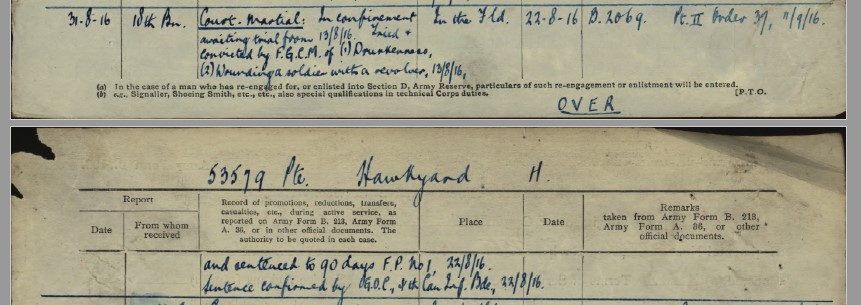 31-8-16 18th Bn. Court-Martial: In confinement In the Fld. 22-8-16 B.2069. Pt. II Order 37, 11/9/16.
awaiting trial from 13/8/16. Tried &
convicted by F.G.C.M. of (1) Drunkenness,
(2) Wounding a soldier with a revolver, 13/8/16,
(a) In the case of a man who has re-engaged for, or enlisted into Section D, Army Reserve, particulars of such re-engagement or enlistment will be entered.
(b) e.g., Signaller, Shoeing Smith, etc., etc., also special qualifications in technical Corps duties. [P.T.O.
OVER
53579 Pte. Hawkyard H.
Report
Date
From whom
received
Record of promotions, reductions, transfers,
casualties, etc., during active service, as
reported on Army Form B. 213, Army Form
A. 36, or in other official documents. The
authority to be quoted in each case.
Place
Date
Remarks
taken from Army Form B. 213,
Army Form A. 36, or other
official documents.
and sentenced to 90 days F.P. No 1, 22/8/16.
Sentence confirmed by G.O.C., 4th Can Inf. Bde, 22/8/16.